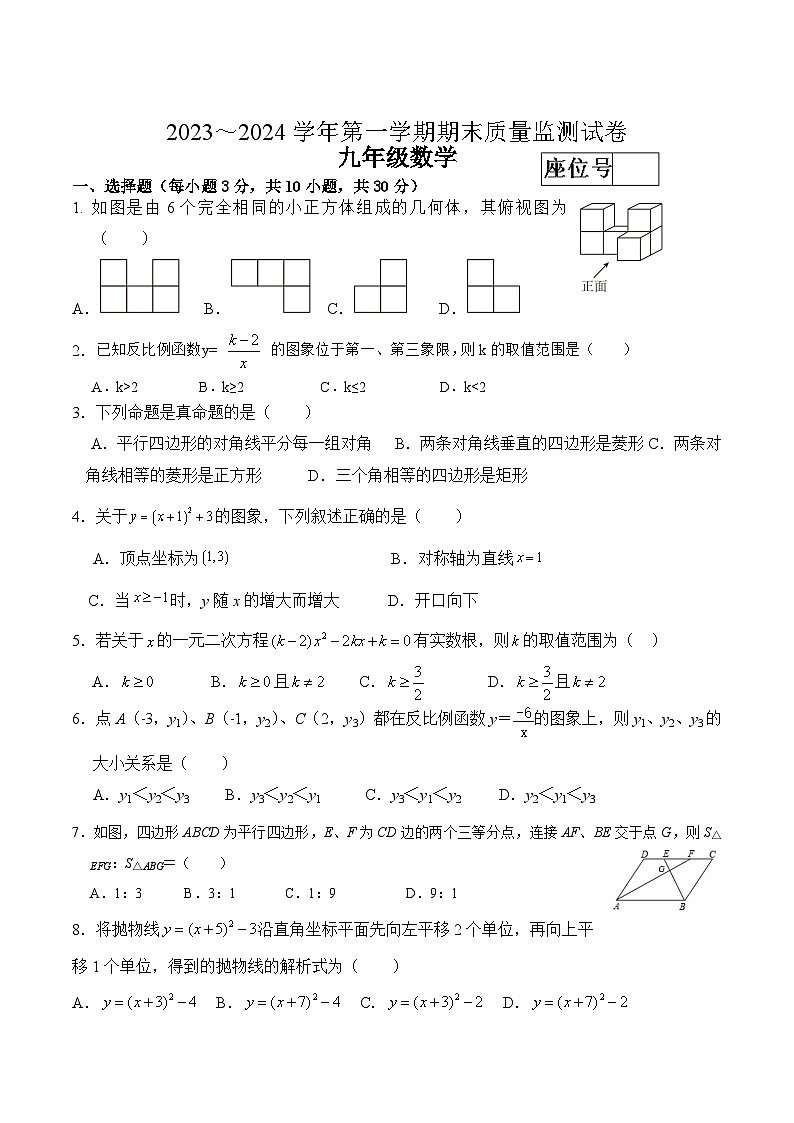 2023～2024学年第一学期期末质量监测试卷
九年级数学
座位号
一、选择题（每小题3分，共10小题，共30分）
1. 如图是由6个完全相同的小正方体组成的几何体，其俯视图为
（　　）
正面
A.　B.　C.　D.
2．已知反比例函数y= (k−2)/x 的图象位于第一、第三象限,则k的取值范围是（　　）
A.k>2　B.k≥2　C.k≤2　D.k<2
3．下列命题是真命题的是（　　）
A．平行四边形的对角线平分每一组对角　B．两条对角线垂直的四边形是菱形 C．两条对
角线相等的菱形是正方形　D．三个角相等的四边形是矩形
4．关于y=(x+1)²+3的图象，下列叙述正确的是（　　）
A．顶点坐标为(1,3)　B．对称轴为直线x=1
C．当x≥−1时，y随x的增大而增大　D．开口向下
5．若关于x的一元二次方程(k−2)x²−2kx+k=0有实数根，则k的取值范围为（　）
A．k≥0　B．k≥0且k≠2　C．k≥3/2　D．k≥3/2且k≠2
6．点A（-3，y₁）、B（-1，y₂）、C（2，y₃）都在反比例函数y＝−6/x的图象上，则y₁、y₂、y₃的
大小关系是（　　）
A．y₁＜y₂＜y₃　B．y₃＜y₂＜y₁　C．y₃＜y₁＜y₂　D．y₂＜y₁＜y₃
7．如图，四边形ABCD为平行四边形，E、F为CD边的两个三等分点，连接AF、BE交于点G，则S△
EFG：S△ABG＝（　　）
D E F C
G
A B
A．1：3　B．3：1　C．1：9　D．9：1
8．将抛物线y=(x+5)²−3沿直角坐标平面先向左平移2个单位，再向上平
移1个单位，得到的抛物线的解析式为（　　）
A．y=(x+3)²−4　B．y=(x+7)²−4　C．y=(x+3)²−2　D．y=(x+7)²−2